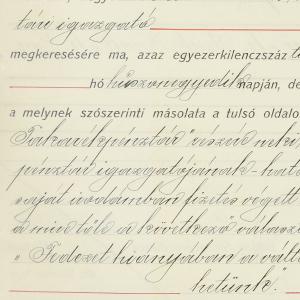 tári igazgató
megkeresésére ma, azaz egyezerkilenczszáz
hó huszonegyedik napján, de
a melynek szószerinti másolata a tulsó oldalo
Takarékpénztár részére neki,
pénztár igazgatójának - hat
saját irodámban fizetés végett
a mire tőle a következő válasz
„Fedezet hiányában a vált
hetünk."